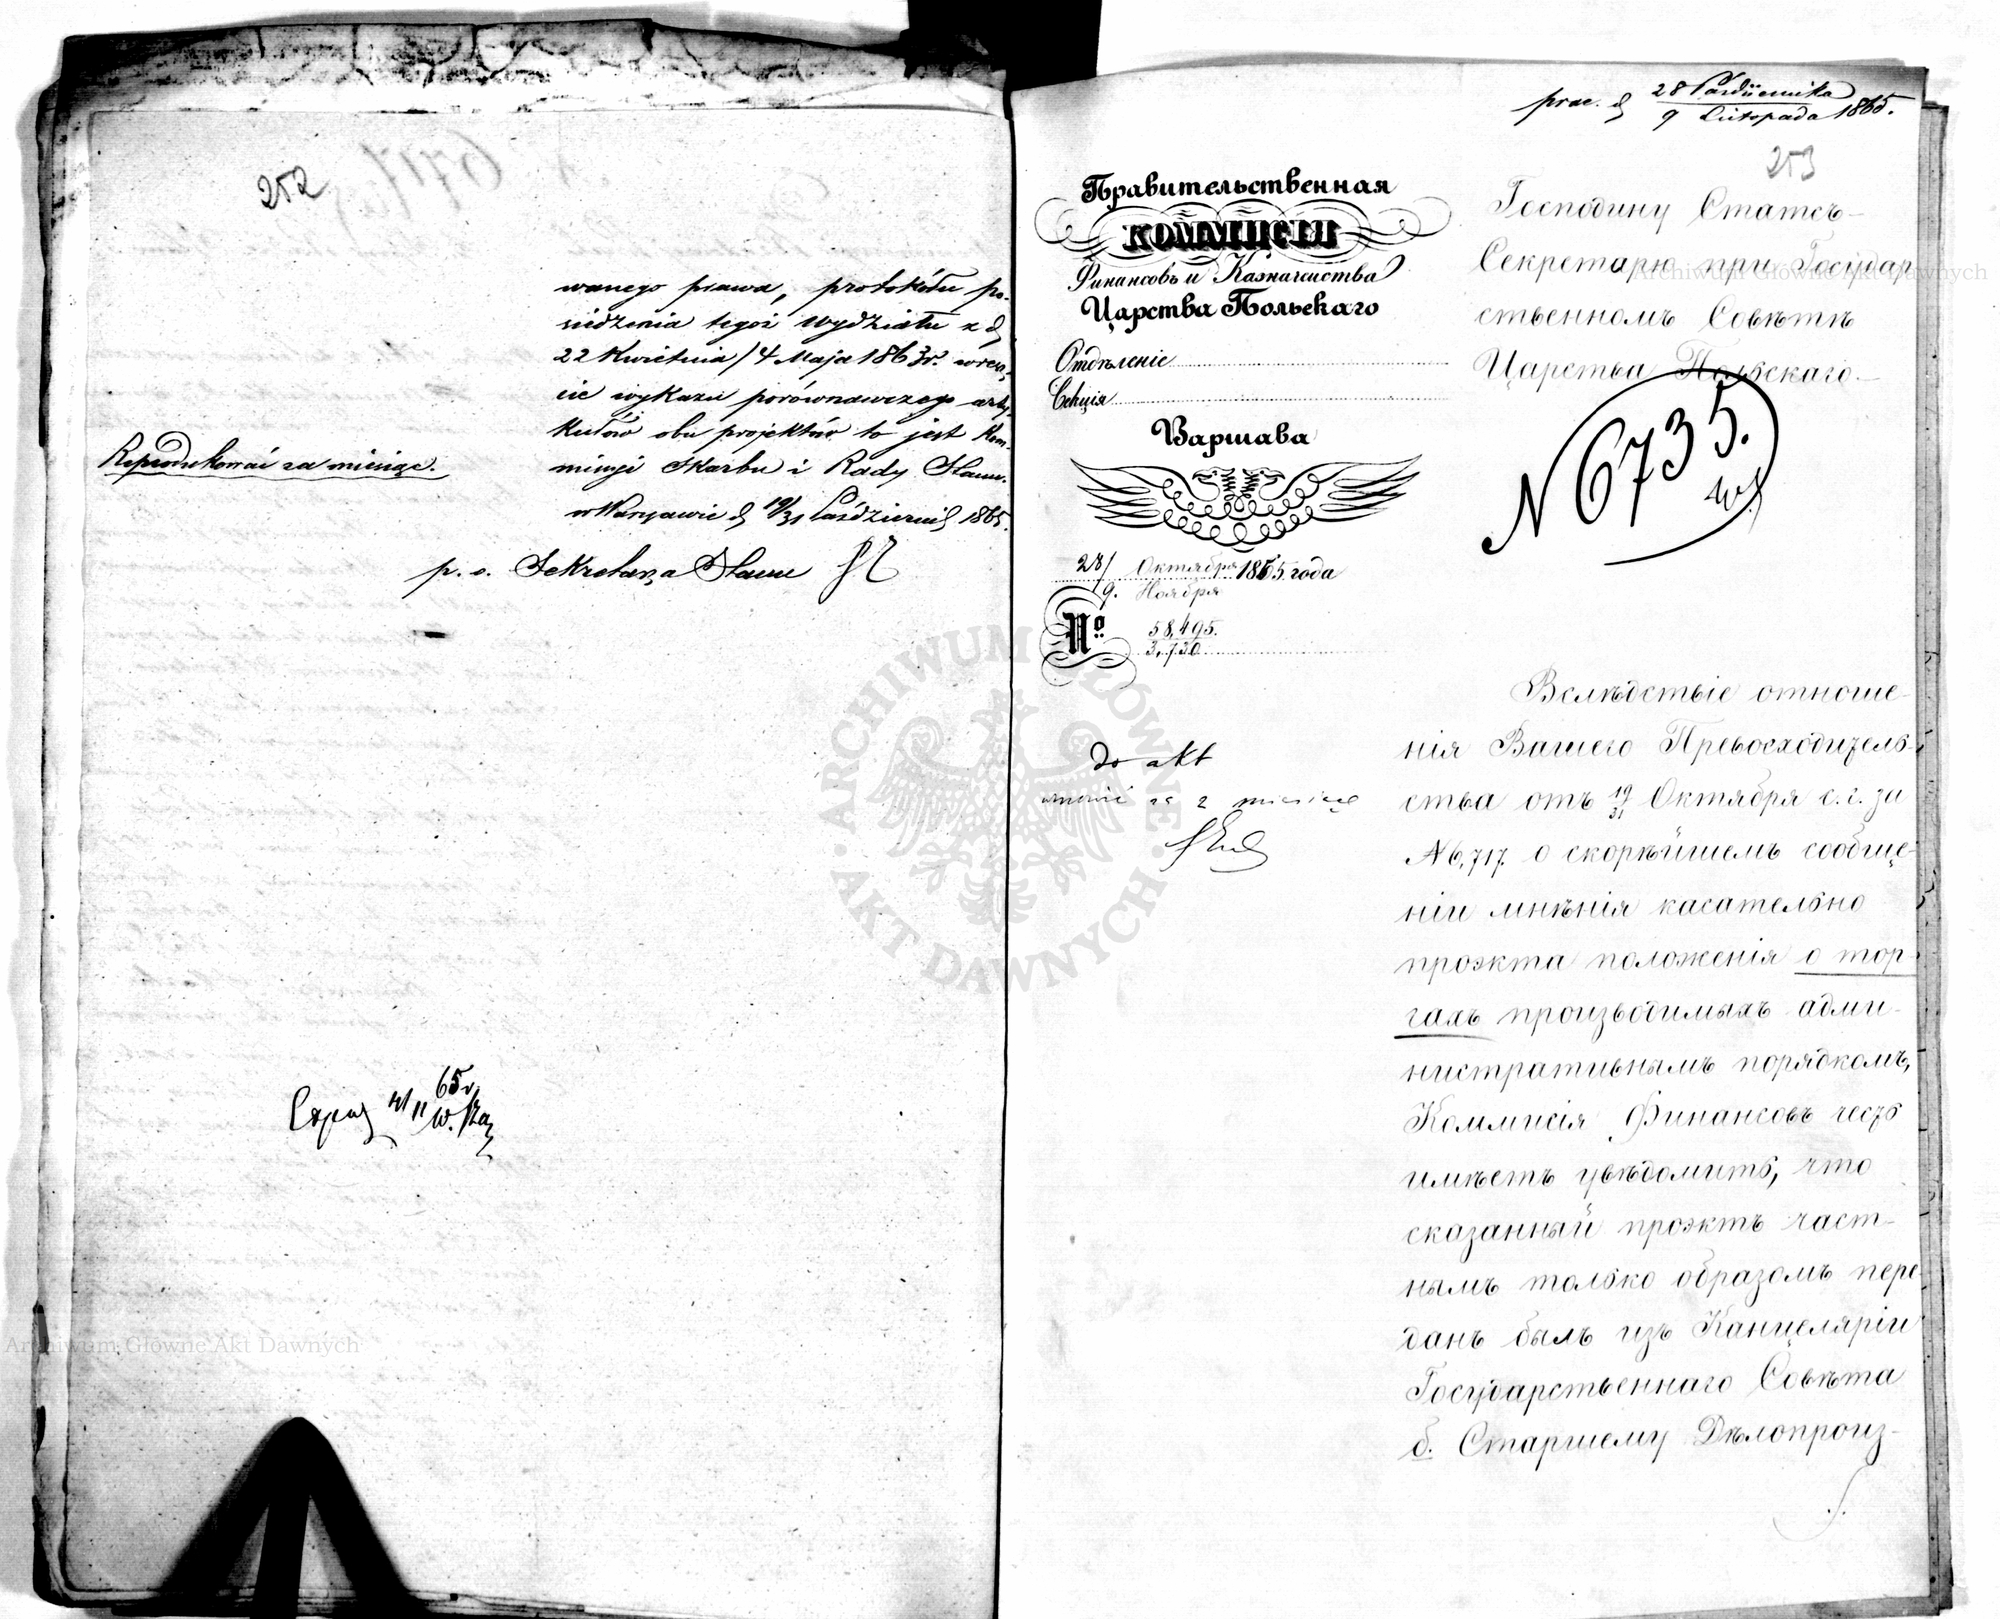 252
wanego prawa, protokółu po-
siedzenia tegoż Wydziału z d.
22 Kwietnia / 4 Maja 1863 r. wresz-
cie wykazu porównawczego arty-
kułów obu projektów to jest Kom-
missyi Skarbu i Rady Stanu.
w Warszawie d. 19/31 Październik 1865.
Reprodukować za miesiąc.
p. o. Sekretarza Stanu
65 r.
prac. d. 28 Października / 9 Listopada 1865.
253
Правительственная
КОММИСІЯ
Финансовъ и Казначейства
Царства Польскаго
Отдѣленіе
Секція
Варшава
28/ Октября 1865 года
9. Ноября
№ 58,495.
3,730
до akt
2 miesiące
Господину Статсъ-
Секретарю при Государ
ственномъ Совѣтѣ
Царства Польскаго.
N 6735.
Вслѣдствіе отноше-
нія Вашего Превосходитель-
ства отъ 19/31 Октября с. г. за
N 6,717 о скорѣйшемъ сообще-
ніи мнѣнія касательно
проэкта положенія о тор-
гахъ производимыхъ адми-
нистративнымъ порядкомъ,
Коммисія Финансовъ честь
имѣетъ увѣдомить, что
сказанный проэктъ част-
нымъ только образомъ пере
данъ былъ изъ Канцеляріи
Государственнаго Совѣта
б. Старшему Дѣлопроиз-
ARCHIWUM GŁÓWNE AKT DAWNYCH
Archiwum Główne Akt Dawnych
Archiwum Główne Akt Dawnych